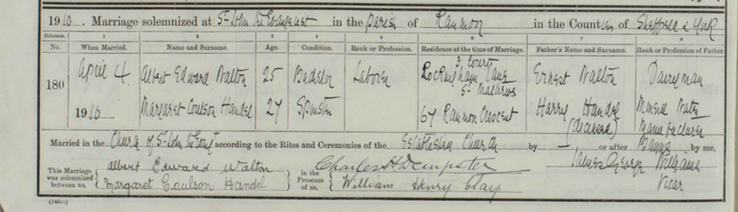 1910. Marriage solemnized at St John the Evangelist in the Parish of Ranmoor in the Counties of Sheffield & York
Columns. 1 2 3 4 5 6 7 8
No. When Married. Name and Surname. Age. Condition. Rank or Profession. Residence at the time of Marriage. Father's Name and Surname. Rank or Profession of Father.
180 April 4 1910 Albert Edward Walton 25 Bachelor Labourer 3, Court Rockingham Lane St Matthews Ernest Walton Dairyman
Margaret Coulson Handel 27 Spinster 67 Ranmoor Crescent Harry Handel (deceased) Mineral Water Manufacturer
Married in the Church of St John the Evangt according to the Rites and Ceremonies of the Established Church by — or after Banns by me,
This Marriage was solemnized between us, Albert Edward Walton Margaret Coulson Handel in the Presence of us, Charles H Dempster William Henry Clay James George Williams Vicar